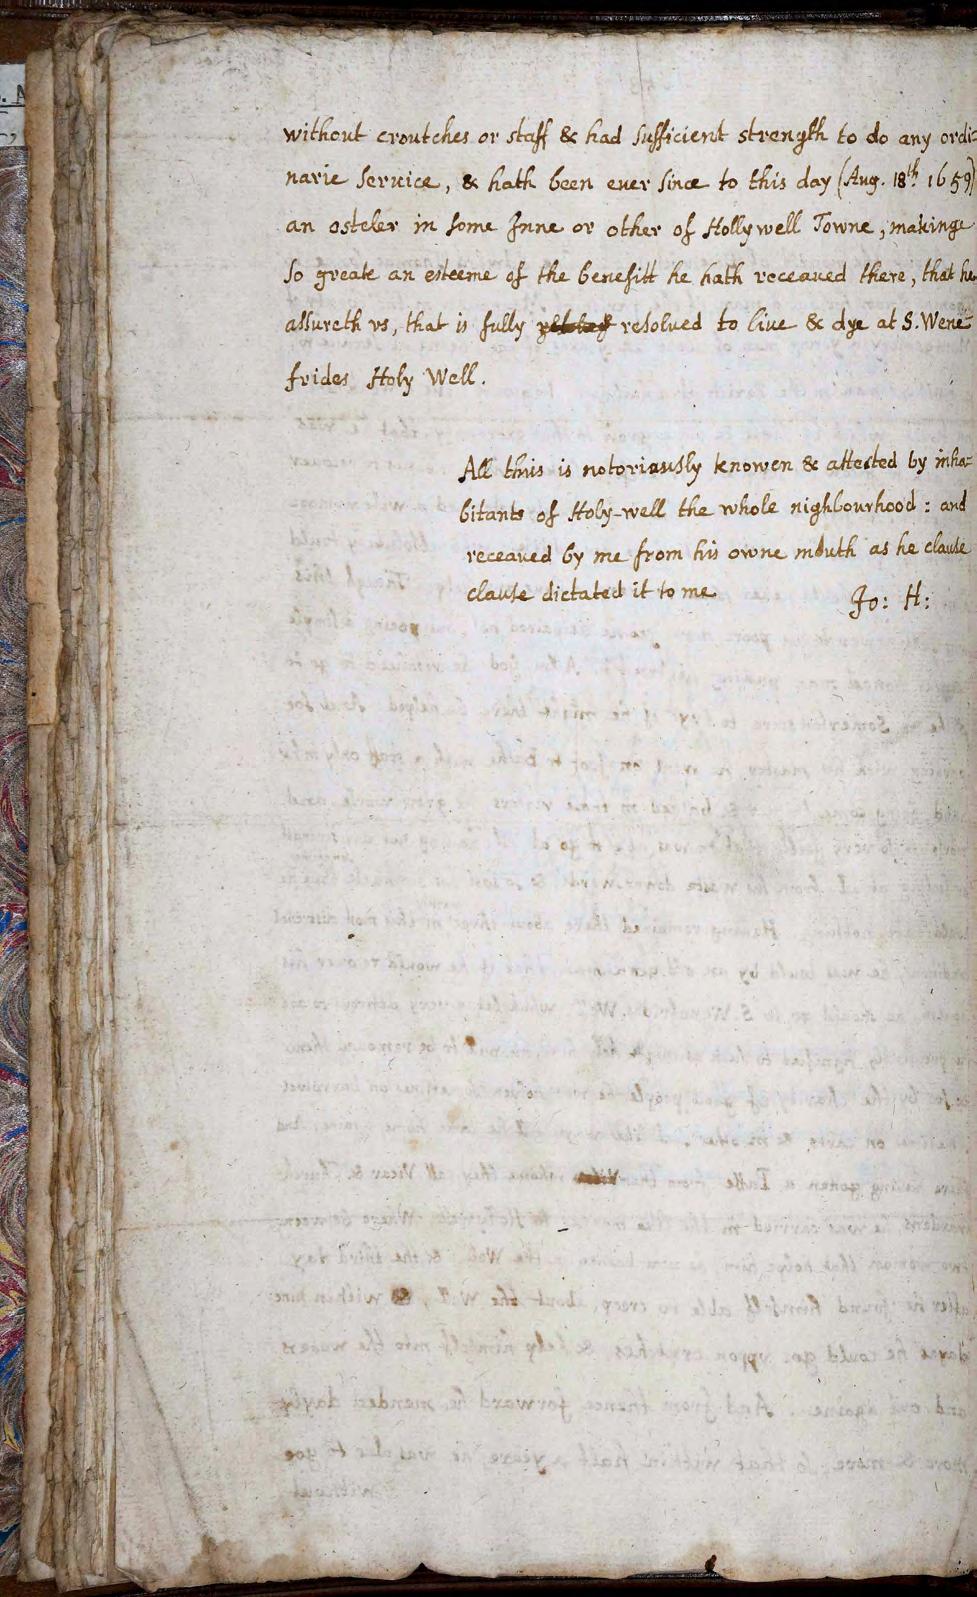 without croutches or staff & had sufficient strength to do any ordi=
narie seruice, & hath been euer since to this day (Aug. 18th. 1659)
an osteler in some Inne or other of Hollywell Towne, makinge
so greate an esteeme of the benefitt he hath receaued there, that he
assureth vs, that is fully resolued to liue & dye at S. Wene=
frides Holy Well.
All this is notoriously knowen & attested by inha=
bitants of Holy-well the whole nighbourhood: and
receaued by me from his owne mouth as he clause
clause dictated it to me
Jo: H: